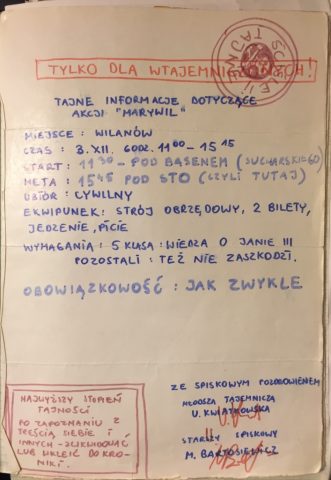 ŚCIŚLE TAJNE
TYLKO DLA WTAJEMNICZONYCH!
TAJNE INFORMACJE DOTYCZĄCE
AKCJI "MARYWIL"
MIEJSCE : WILANÓW
CZAS : 3.XII. GODZ. 11⁰⁰ - 15¹⁵
START : 11³⁰ - POD BASENEM (SUCHARSKI=60)
META : 15⁴⁵ POD STO (CZYLI TUTAJ)
UBIÓR : CYWILNY
EKWIPUNEK : STRÓJ OBRZĘDOWY, 2 BILETY,
JEDZENIE, PICIE
WYMAGANIA : 5 KLASA : WIEDZA O JANIE III
POZOSTALI : TEŻ NIE ZASZKODZI.
OBOWIĄZKOWOŚĆ : JAK ZWYKLE
ZE SPISKOWYM POZDROWIENIEM
MŁODSZA TAJEMNICZA
U. KWIATKOWSKA
STARSZY SPISKOWY
M. BARTOSIEWICZ
NAJWYŻSZY STOPIEŃ
TAJNOŚCI
PO ZAPOZNANIU Z
TREŚCIĄ SIEBIE I
INNYCH - ZLIKWIDOWAĆ
LUB WKLEIĆ DO KRO-
NIKI.